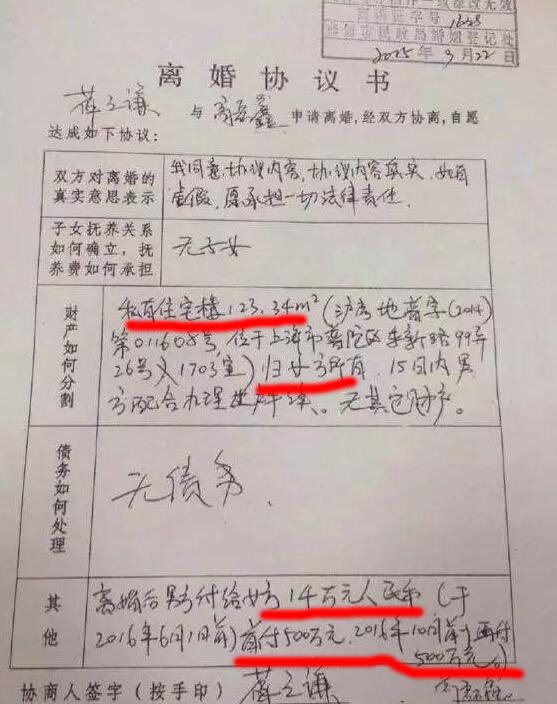 2015年9月22日
离婚协议书
薛之谦 与 高磊鑫 申请离婚,经双方协商,自愿
达成如下协议:
双方对离婚的
真实意思表示
我同意协议内容,协议内容真实,如有
虚假,愿承担一切法律责任.
子女抚养关系
如何确立,抚
养费如何承担
无子女
财产如何分割
私有住宅楼123.34m²(沪房地普字(2014)
第011608号,位于上海市普陀区 99弄
26号 1703室)归女方所有,15日内男
方配合办理 手续。无其它财产。
债务如何处理
无债务.
其他
离婚后男方付给女方1千万元人民币(于
2016年6月1日前)首付500万元,2016年10月前 再付
500万元。)
协商人签字(按手印) 薛之谦 高磊鑫